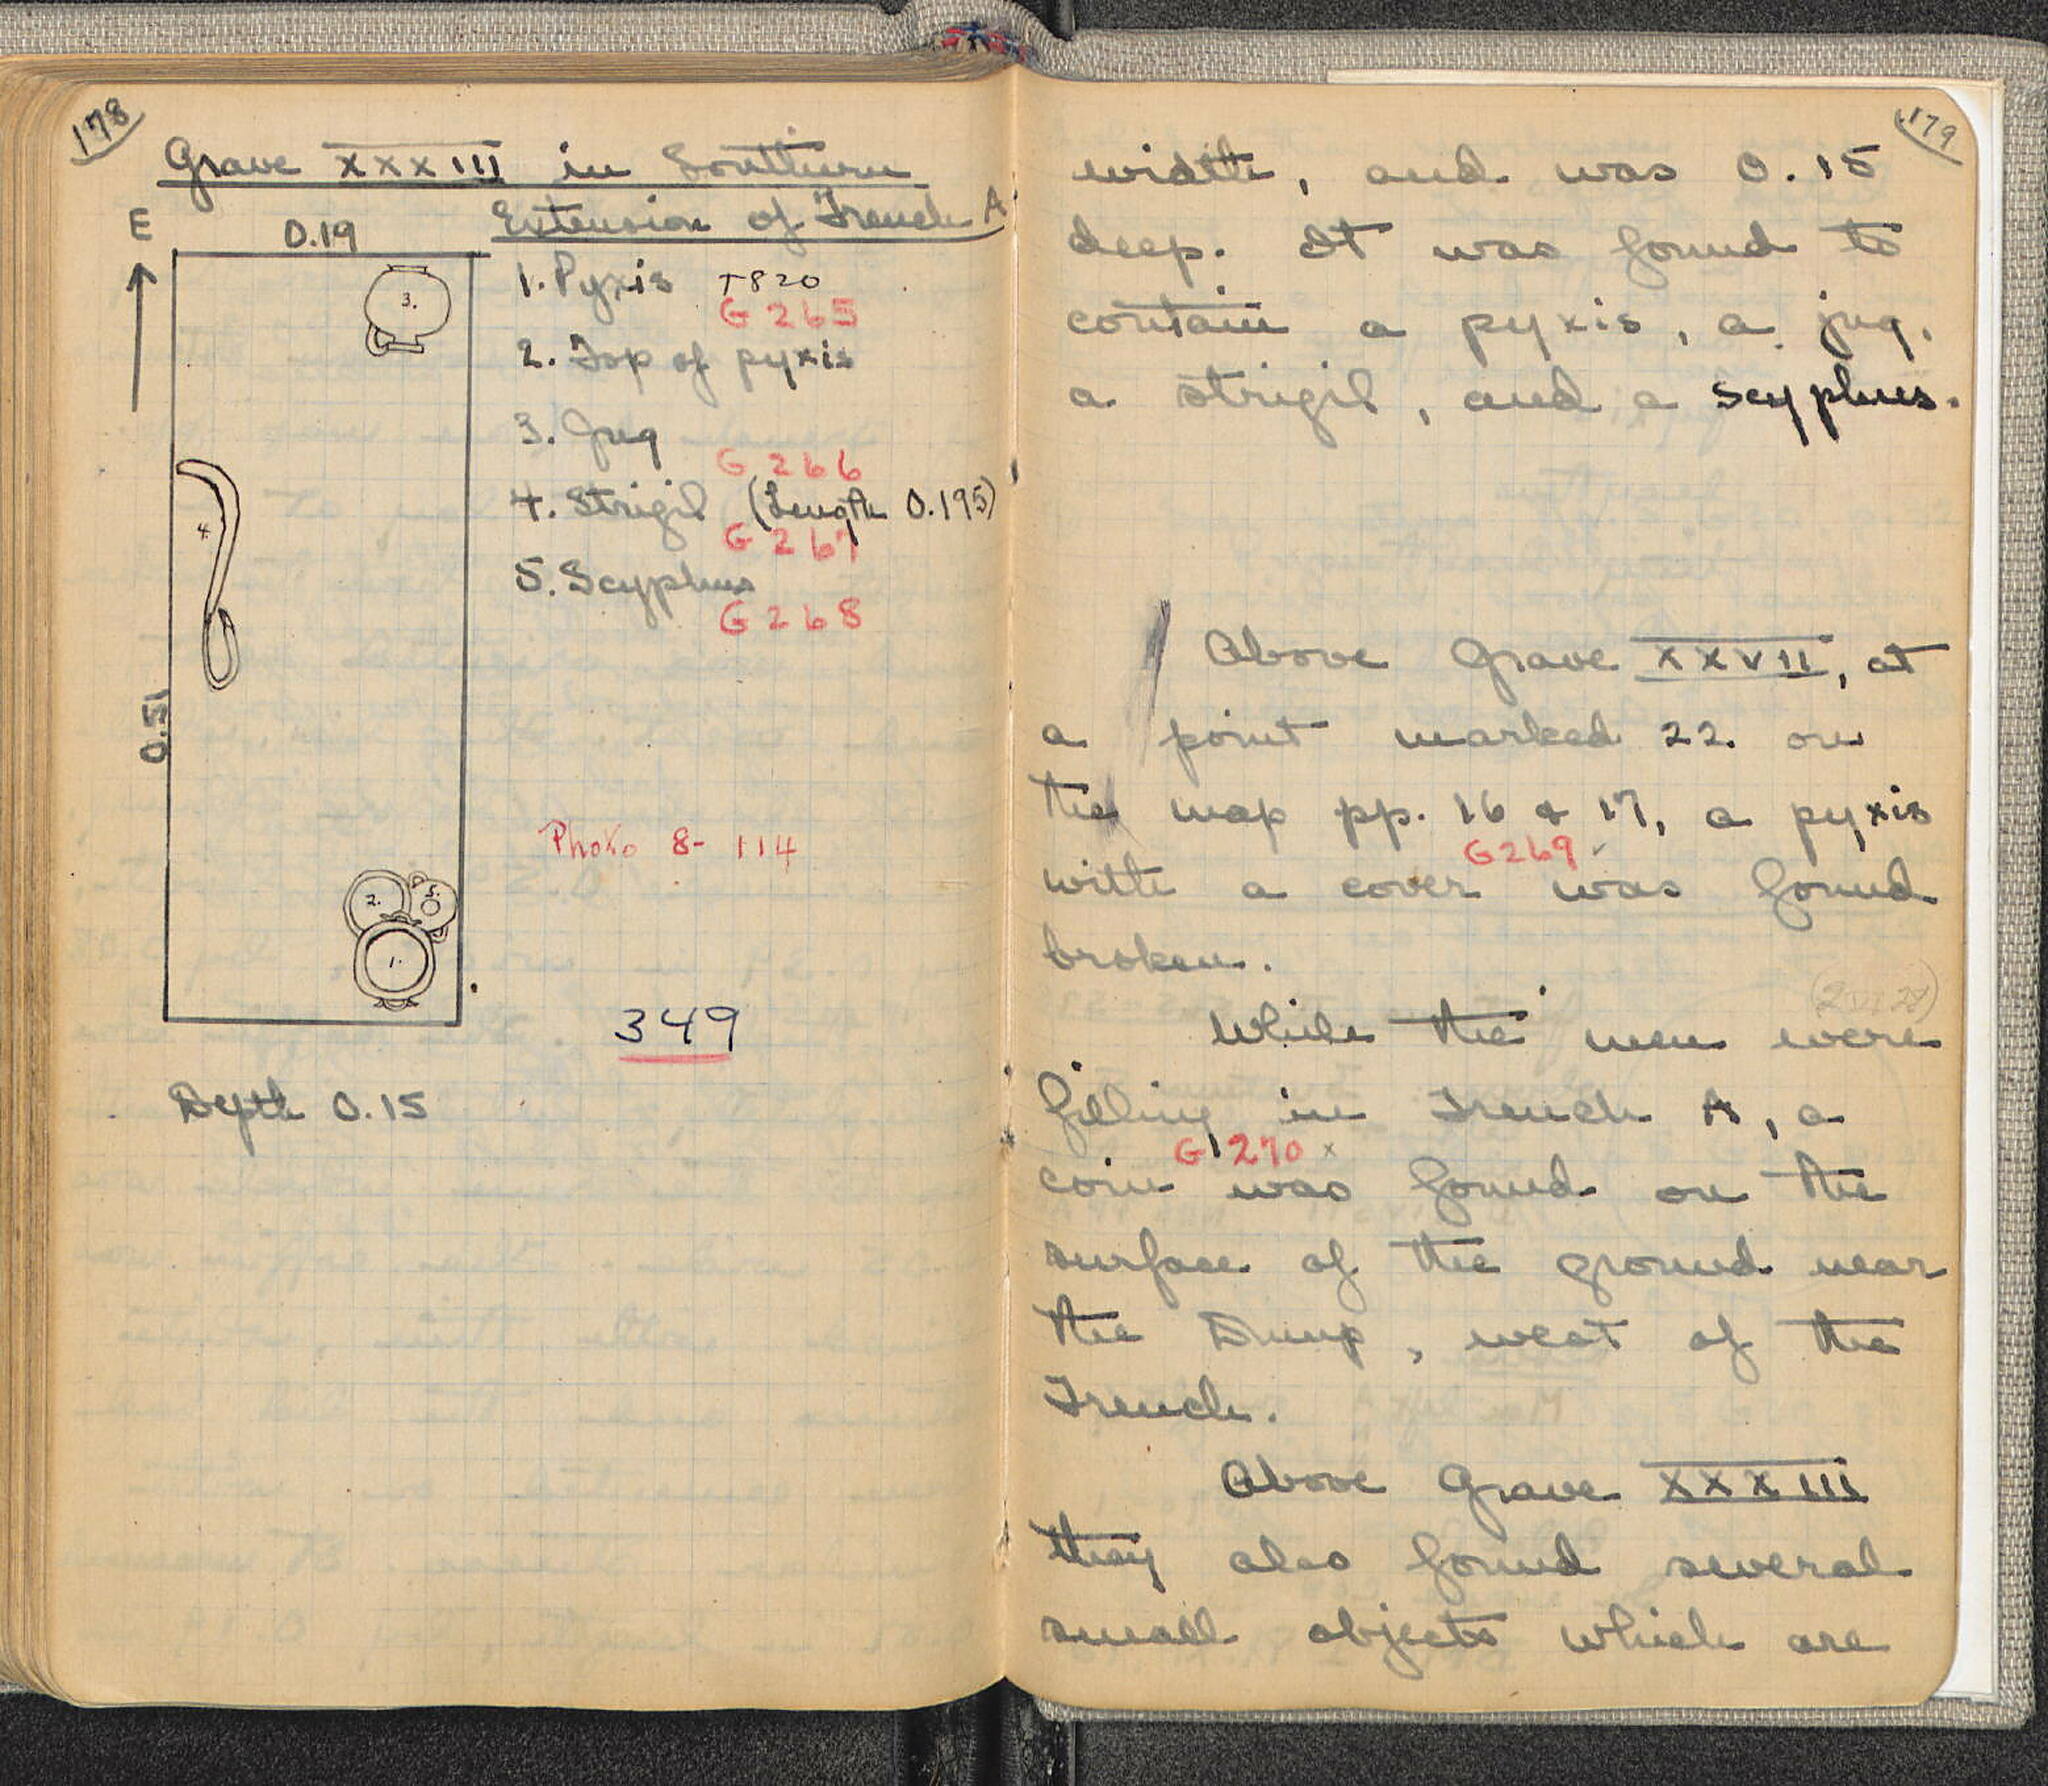 178
Grave XXXIII in Southern
Extension of Trench A
E
0.19
1. Pyxis T820
G 265
2. Top of pyxis
3. Jug
G 266
4. Strigil (Length 0.195)
G 267
5. Scyphus
G 268
3.
4.
0.51
Photo 8-114
2.
5.
1.
349
Depth 0.15
179
width, and was 0.15
deep. It was found to
contain a pyxis, a jug,
a strigil, and a scyphus.
Above Grave XXVII, at
a point marked 22 on
the map pp. 16 & 17, a pyxis
G269
with a cover was found
broken.
While the men were
filling in Trench A, a
G 270 x
coin was found on the
surface of the ground near
the Dump, west of the
Trench.
Above Grave XXXIII
they also found several
small objects which are